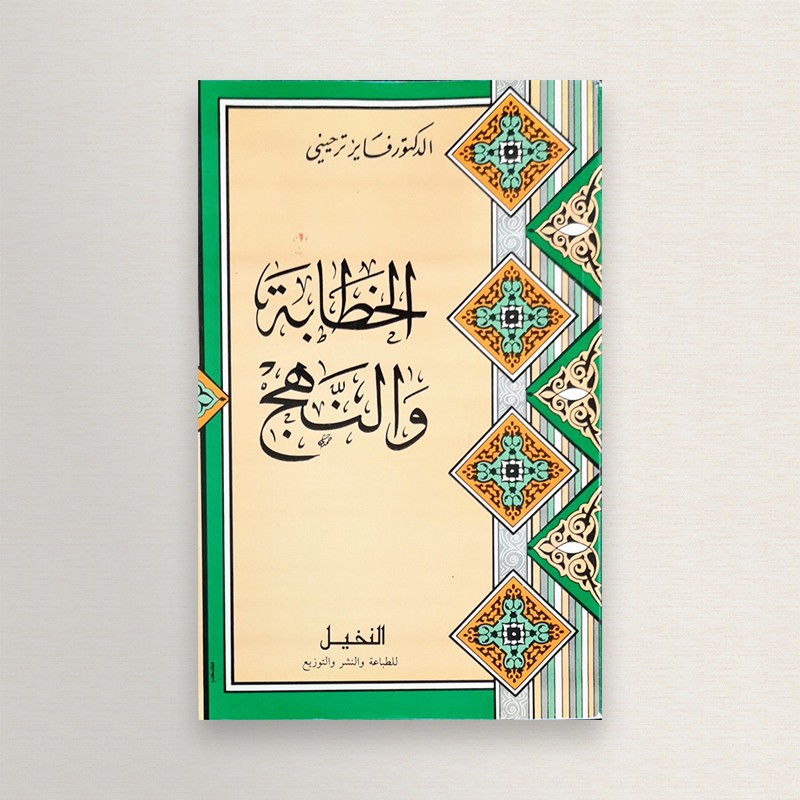 الدكتور فايز ترحيني
الخطابة
والنهج
النخيل
للطباعة والنشر والتوزيع